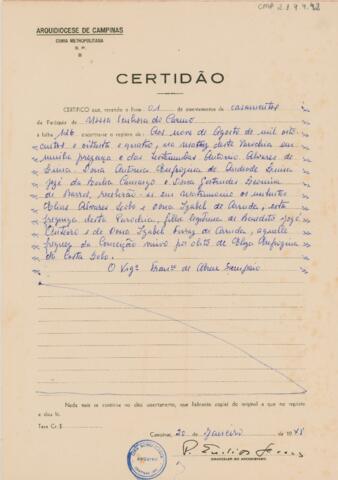 CMP 2.1.9.9.92
ARQUIDIOCESE DE CAMPINAS
CURIA METROPOLITANA
CERTIDÃO
CERTIFICO que, revendo o livro 01 de assentamentos de casamentos
da Paróquia de Nossa Senhora do Carmo
à folha 126 encontra-se o registro de: Aos nove de Agosto de mil oito-
centos e oitenta e quatro, na matriz desta Parochia em
minha presença e das testemunhas Antonio Alvares de
Dona Antonia de Andrade
José da Rocha Camargo e Dona Gertrudes
de Barros, receberão-se em matrimonio os
Elias Alvares Lobo e Dona Izabel de Arruda, esta
desta Parochia, filha legitima de Benedito José
e de Dona Izabel Ferraz de Arruda, aquelle
freguez da Conceição viuvo por obito de Eliza
da Costa Lobo.
O Vigº Franco de Abreu Sampaio
Nada mais se continha no dito assentamento, que fielmente copiei do original e que me reporto
e dou fé.
Taxa Cr.$
Campinas, 20 de Janeiro de 1948
CHANCELER DO ARCEBISPADO